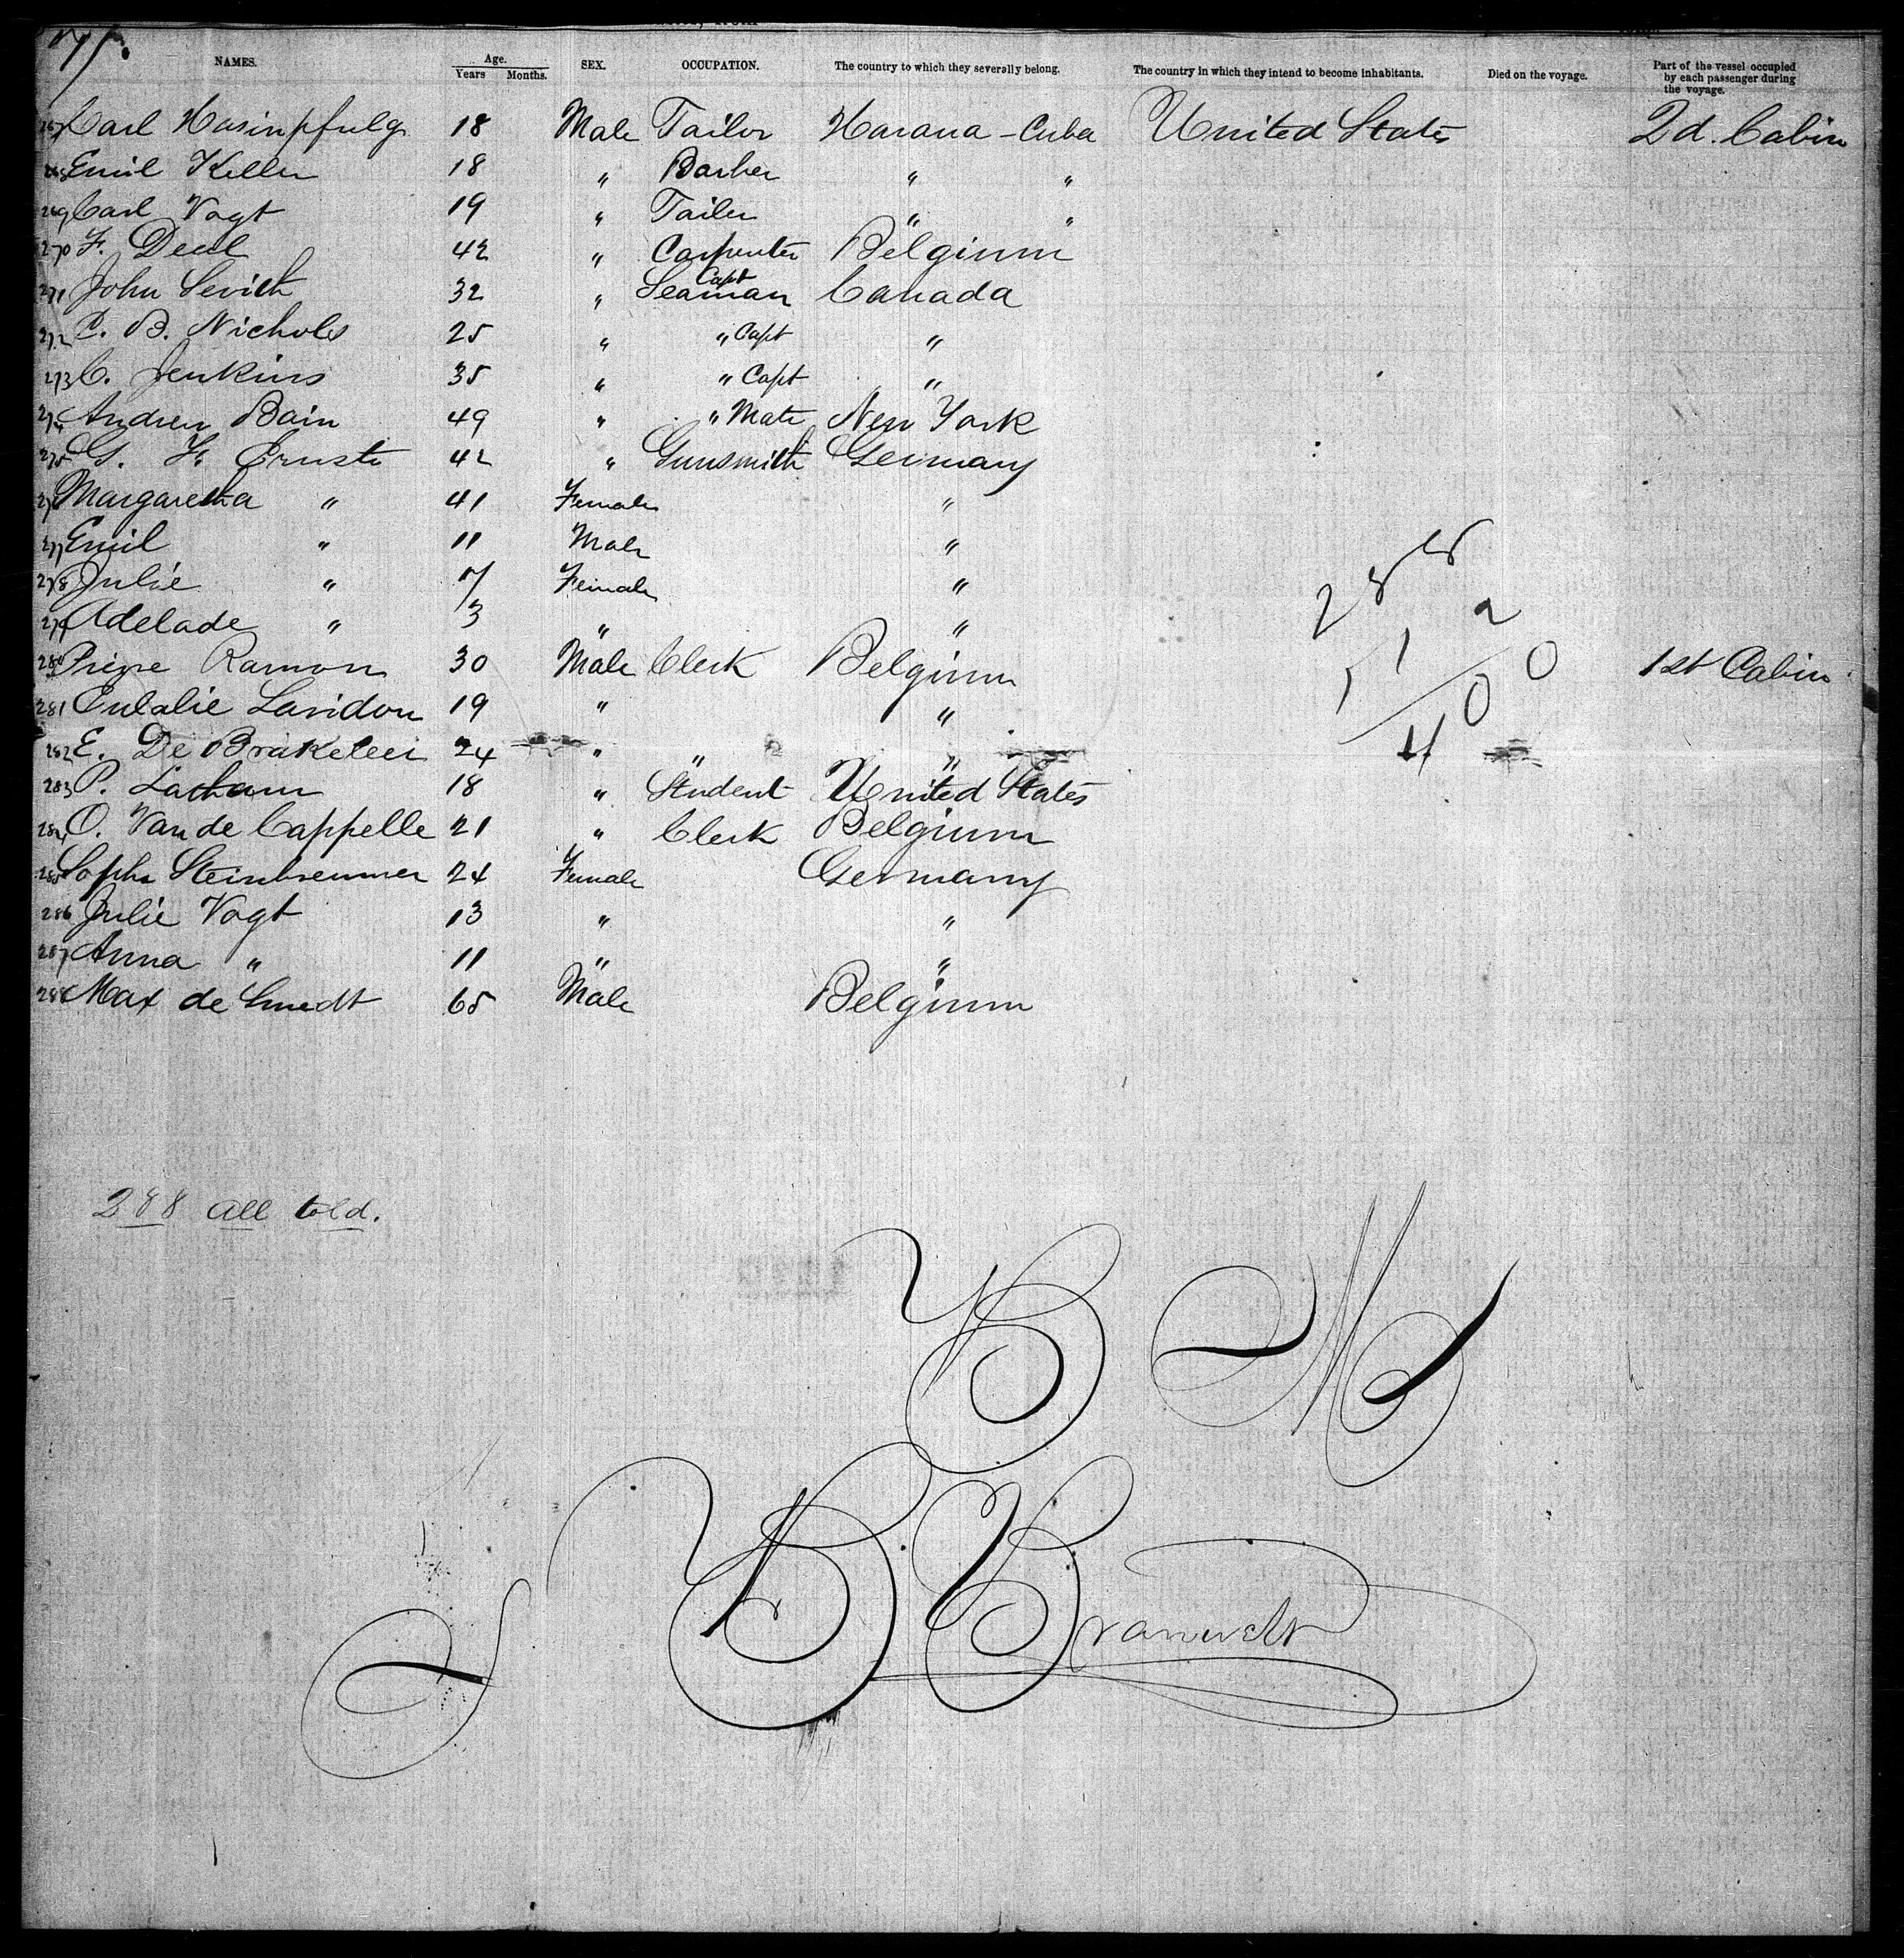 NAMES. Age. Years Months. SEX. OCCUPATION. The country to which they severally belong. The country in which they intend to become inhabitants. Died on the voyage. Part of the vessel occupied by each passenger during the voyage.
267 Carl 18 Male Tailor Havana - Cuba United States 2d. Cabin
268 Emil Keller 18 " Barber " "
269 Carl Vogt 19 " Tailor " "
270 F. Deul 42 " Carpenter Belgium
271 John 32 " Seaman Capt Canada
272 C. B. Nichols 25 " " Capt "
273 C. Jenkins 35 " " Capt "
274 Andrew Bain 49 " " Mate New York
275 G. F. Ernste 42 " Gunsmith Germany
276 Margaretha " 41 Female "
277 Emil " 11 Male "
278 Julie " 7 Female "
279 Adelade " 3 " "
280 Ramon 30 Male Clerk Belgium 1st Cabin
281 Eulalie Lavidon 19 " "
282 E. De Brakeleer 24 " " "
283 P. Latham 18 " Student United States
284 O. Van de Cappelle 21 " Clerk Belgium
285 Sophie 24 Female Germany
286 Julie Vogt 13 " "
287 Anna " 11 " "
288 Max de Smedt 65 Male Belgium
288
112
400
288 all told.
B M
B B